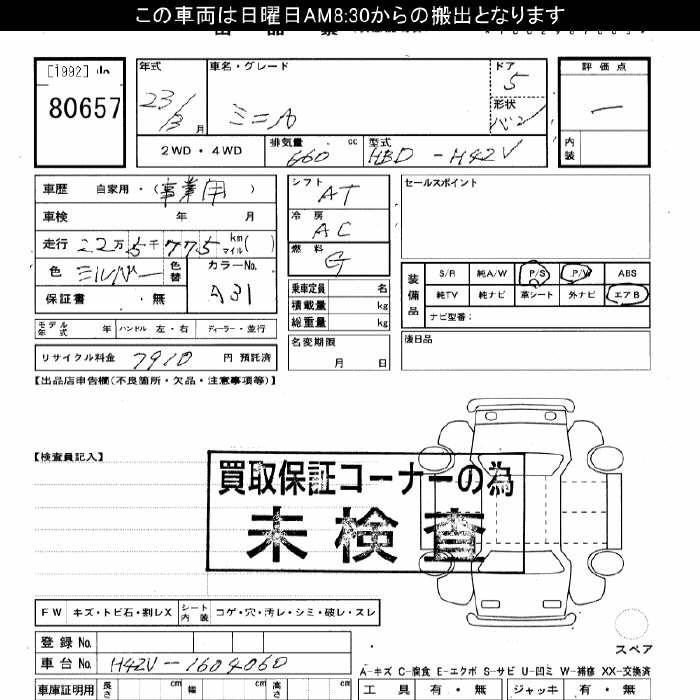 この車両は日曜日AM8:30からの搬出となります
[1992]
80657
年式 車名・グレード ドア 評価点
23/3月 ミニA 5 形状 バン 一
2WD・4WD 排気量 660 cc 型式 HBD-H42V 内装
車歴 自家用・(事業用) シフト AT セールスポイント
車検 年 月 冷房 AC
走行 22万5千775 km マイル( ) 燃料 G
色 シルバー 色替 カラーNo. A31
保証書 ・無 乗車定員 名
積載量 kg
総重量 kg
装備品 S/R 純A/W P/S P/W ABS
純TV 純ナビ 革シート 外ナビ エアB
ナビ型番:
モデル年式 年 ハンドル 左・右 ディーラー・並行 名変期限 月 日 後日品
リサイクル料金 7910 円 預託済
【出品店申告欄(不良箇所・欠品・注意事項等)】
【検査員記入】
買取保証コーナーの為
未検査
FW キズ・トビ石・割レX シート内装 コゲ・穴・汚レ・シミ・破レ・スレ
登録 No.
車台 No. H42V-1604060
スペア
A-キズ C-腐食 E-エクボ S-サビ U-凹ミ W-補修 XX-交換済
車庫証明用 長さ cm 幅 cm 高さ cm 工具 有・無 ジャッキ 有・無